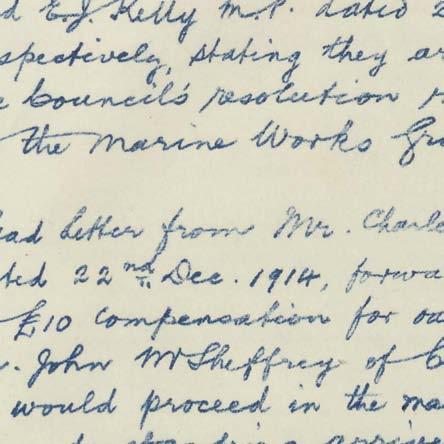 d E.J. Kelly M.P. dated 2
spectively, stating they a
e Council's resolution r
the Marine Works Gra
ead letter from Mr. Charle
ted 22nd Dec. 1914, forwa
£10 compensation for oa
. John McSheffrey of C
would proceed in the ma